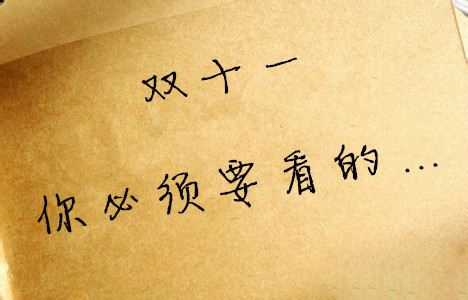 双十一
你必须要看的...